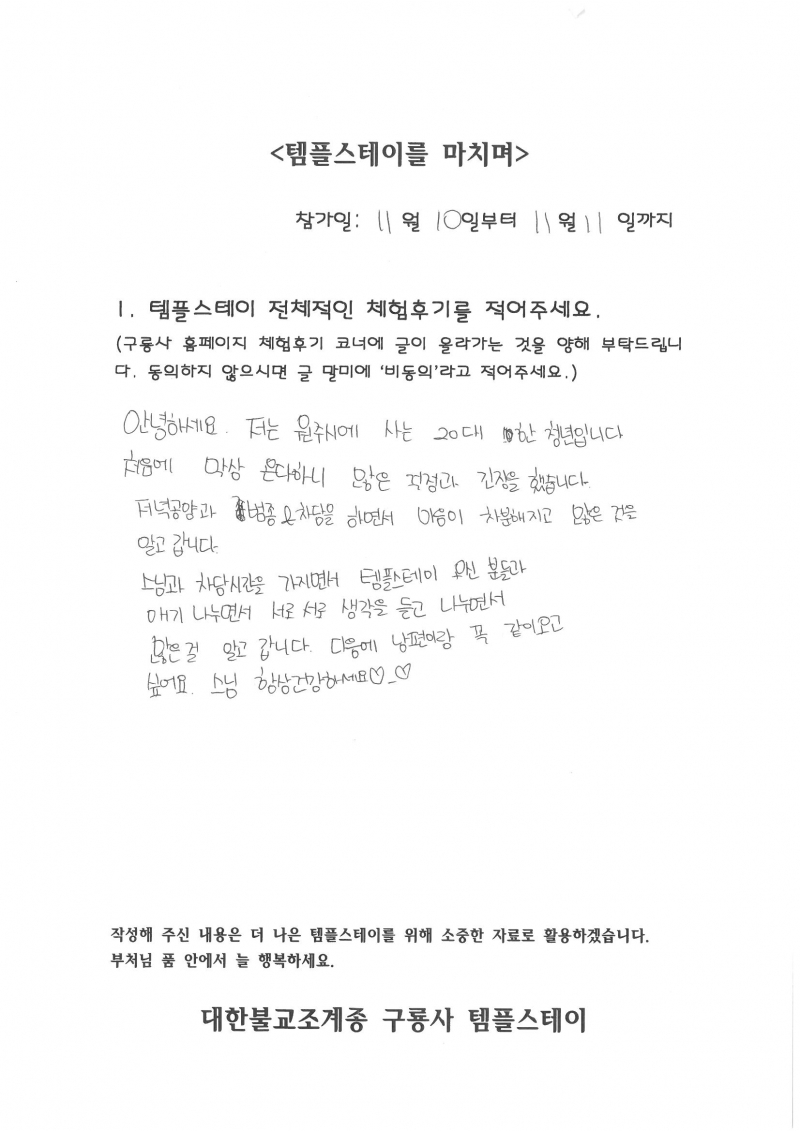 <템플스테이를 마치며>
참가일: 11 월 10일부터 11월 11 일까지
1. 템플스테이 전체적인 체험후기를 적어주세요.
(구룡사 홈페이지 체험후기 코너에 글이 올라가는 것을 양해 부탁드립니
다. 동의하지 않으시면 글 말미에 '비동의'라고 적어주세요.)
안녕하세요. 저는 원주시에 사는 20대 한 청년입니다
처음에 막상 온다하니 많은 걱정과 긴장을 했습니다.
저녁공양과 범종 차담을 하면서 마음이 차분해지고 많은 것을
알고 갑니다.
스님과 차담시간을 가지면서 템플스테이 오신 분들과
얘기 나누면서 서로 서로 생각을 듣고 나누면서
많은걸 알고 갑니다. 다음에 남편이랑 꼭 같이오고
싶어요. 스님 항상건강하세요♡_♡
작성해 주신 내용은 더 나은 템플스테이를 위해 소중한 자료로 활용하겠습니다.
부처님 품 안에서 늘 행복하세요.
대한불교조계종 구룡사 템플스테이